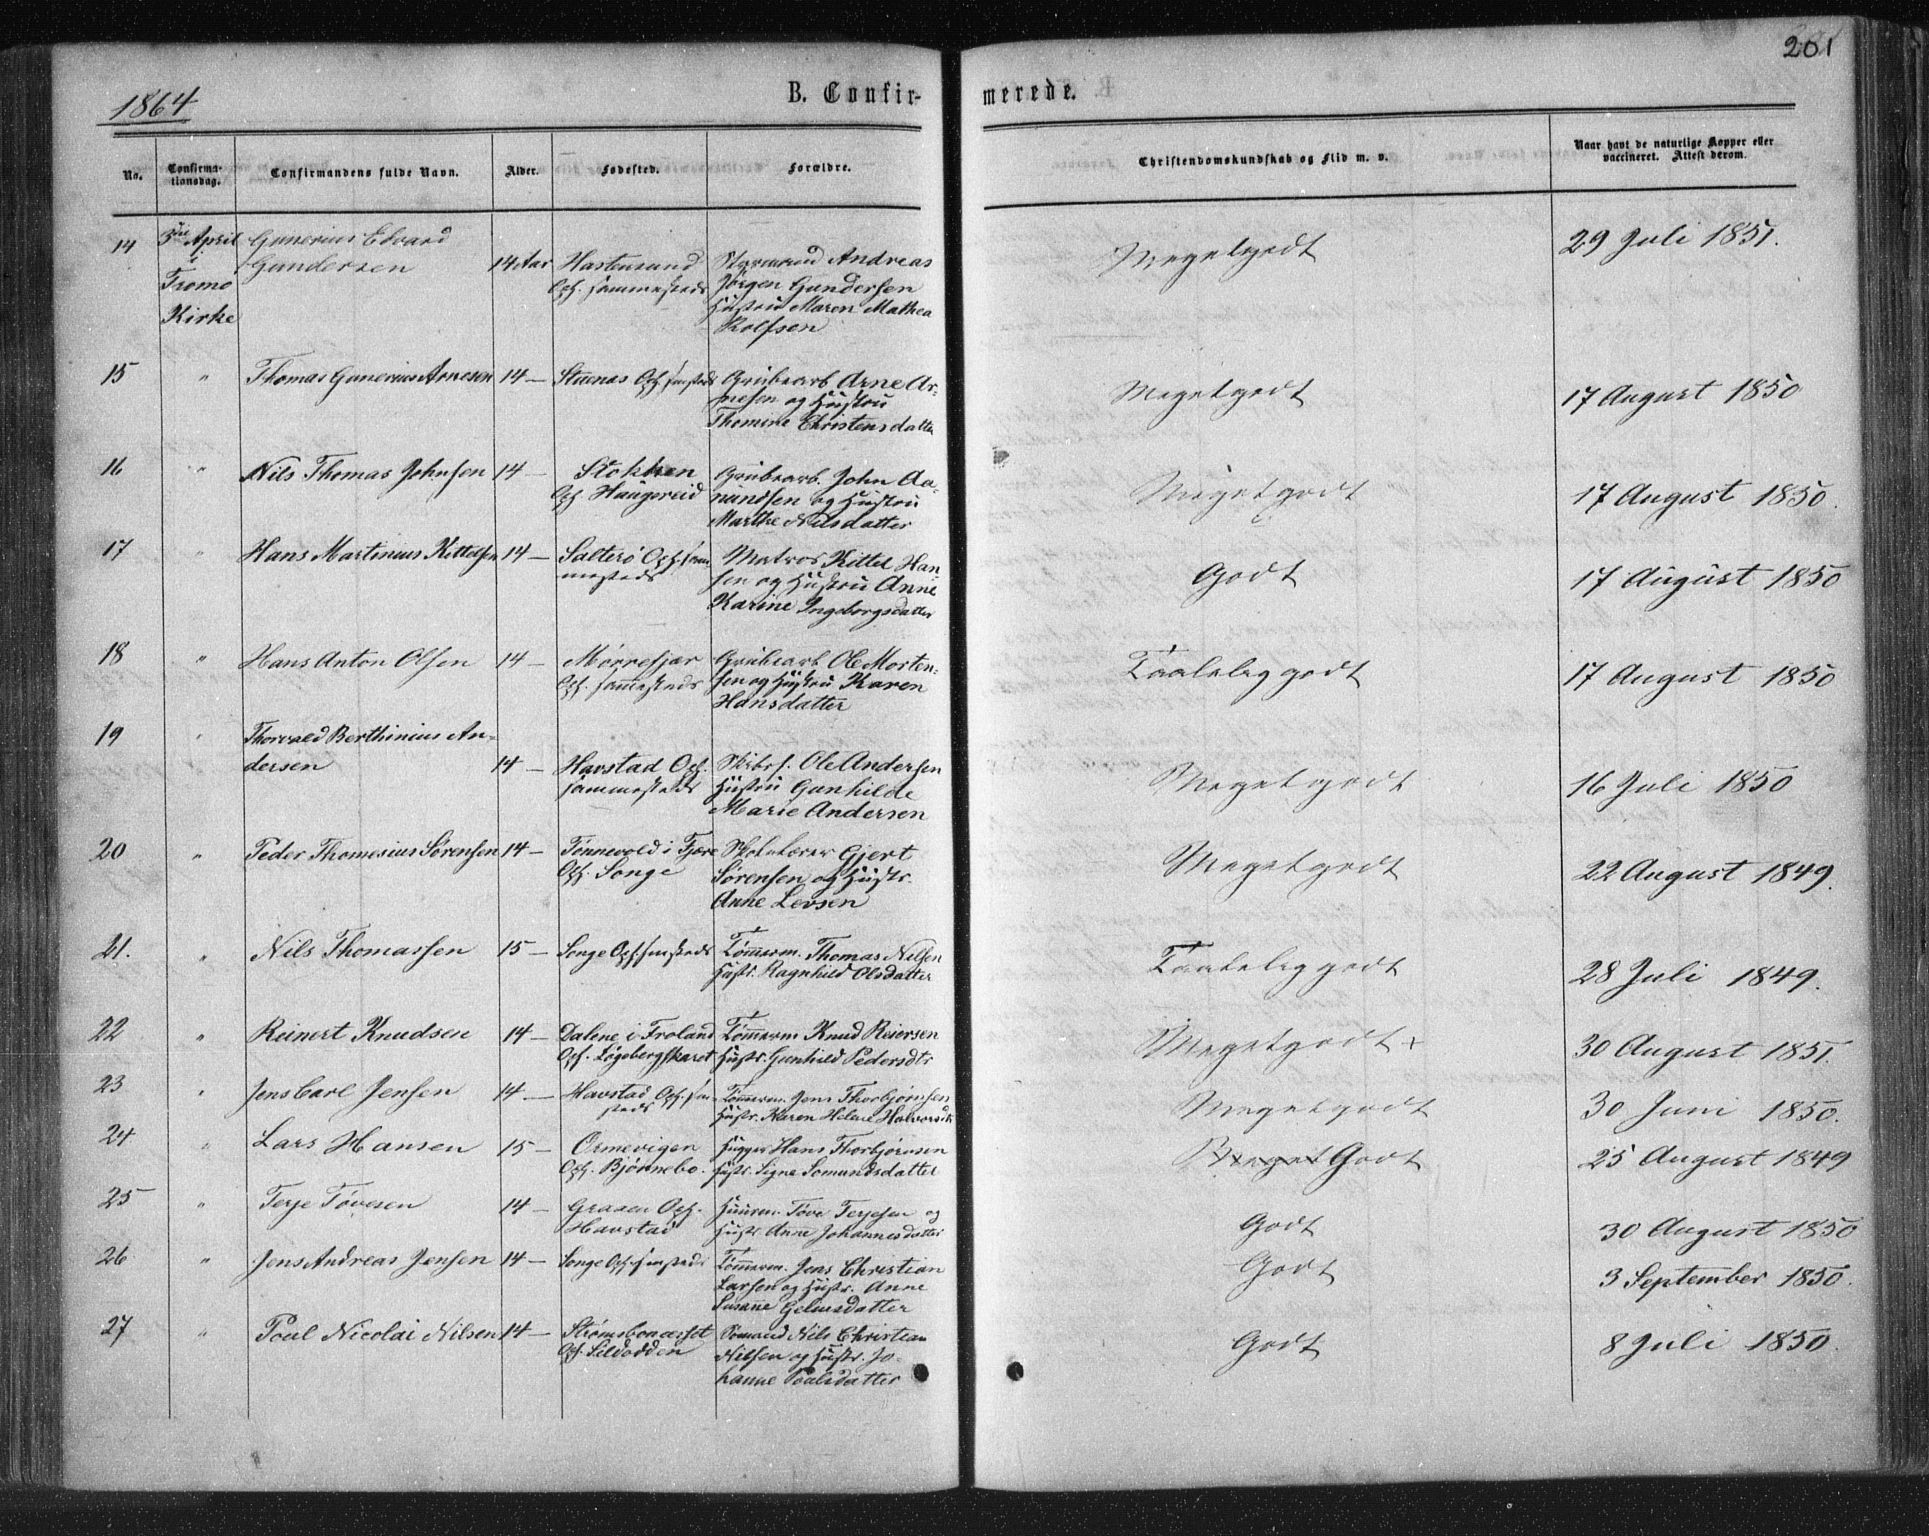 201
1864
B. Confir-
merede.
No.
Confirma-
tionsdag.
Confirmandens fulde Navn.
Alder.
Fødested.
Forældre.
Christendomskundskab og Flid m. v.
Naar havt de naturlige Kopper eller
vaccineret. Attest derom.
14
3die April
i
Tromø
Kirke
Gunerius Edvard
Gundersen
14 Aar
Hastensund
Oph. sammesteds
Styrmand Andreas
Jørgen Gundersen
Hustru Maren Mathea
Rolfsen
Megetgodt
29 Juli 1851.
15
"
Thomas Gunerius Arnesen
14 —
Stuenas Oph. smsteds
Grubearb Arne Ar-
nesen og Hustru
Thomine Christensdatter
Megetgodt
17 August 1850
16
"
Nils Thomas Johnsen
14 —
Stokken
Oph. Haugereid
Grubearb. John Aa-
nundsen og Hustru
Marthe Nilsdatter
Megetgodt
17 August 1850.
17
"
Hans Martinius Kittelsen
14 —
Salterø Oph. sam
mesteds
Matros Kittel Han
sen og Hustru Anne
Karine Ingeborgsdatter
Godt
17 August 1850
18
"
Hans Anton Olsen
14 —
Mørrefjær
Oph. sammesteds
Grubearb Ole Morten-
sen og Hustru Karen
Hansdatter
Taaleleg godt
17 August 1850
19
"
Thorvald Berthinius An-
dersen
14 —
Havstad Oph.
sammesteds
Skibsf. Ole Andersen
Hustru Gunhilde
Marie Andersen
Megetgodt
16 Juli 1850
20
"
Peder Thomesius Sørensen
14 —
Tønnevold i Fjære
Oph. Songe
Skolelærer Gjert
Sørensen og Hustr.
Anne Levsen
Megetgodt
22 August 1849.
21.
"
Nils Thomassen
15 —
Songe Oph. smsteds
Tømmerm. Thomas Nilsen
Hustr. Ragnhild Olsdatter
Taaleleg godt
28 Juli 1849.
22
"
Reinert Knudsen
14 —
Dalene i Froland
Oph. Løgebergskaret
Tømmerm Knud Reiersen
Hustr. Gunhild Pedersdtr
Megetgodt +
30 August 1851.
23
"
Jens Carl Jensen
14. —
Havstad Oph. sm-
steds
Tømmerm. Jens Thorbjørnsen
Hustr. Karen Helene Halvorsdtr
Megetgodt
30 Juni 1850.
24
"
Lars Hansen
15 —
Ormevigen
Oph. Bjønnebo.
Hugger Hans Thorbjørnsen
Hustr. Signe Somundsdatter
Meget Godt
25 August 1849
25
"
Terje Tøvesen
14 —
Graven Oph.
Havstad
Huusm. Tøve Terjesen og
Hustr Anne Johannesdatter
Godt
30 August 1850
26
"
Jens Andreas Jensen
14 —
Songe Oph. smsteds
Tømmerm. Jens Christian
Larsen og Hustr. Anne
Susanne Gelmsdatter
Godt
3 September 1850.
27
"
Poul Nicolai Nilsen
14 —
Strømsbonæsset
Oph. Sildodden
Sømand Nils Christian
Nilsen og Hustr. Jo-
hanne Poulsdatter
Godt
8 Juli 1850.